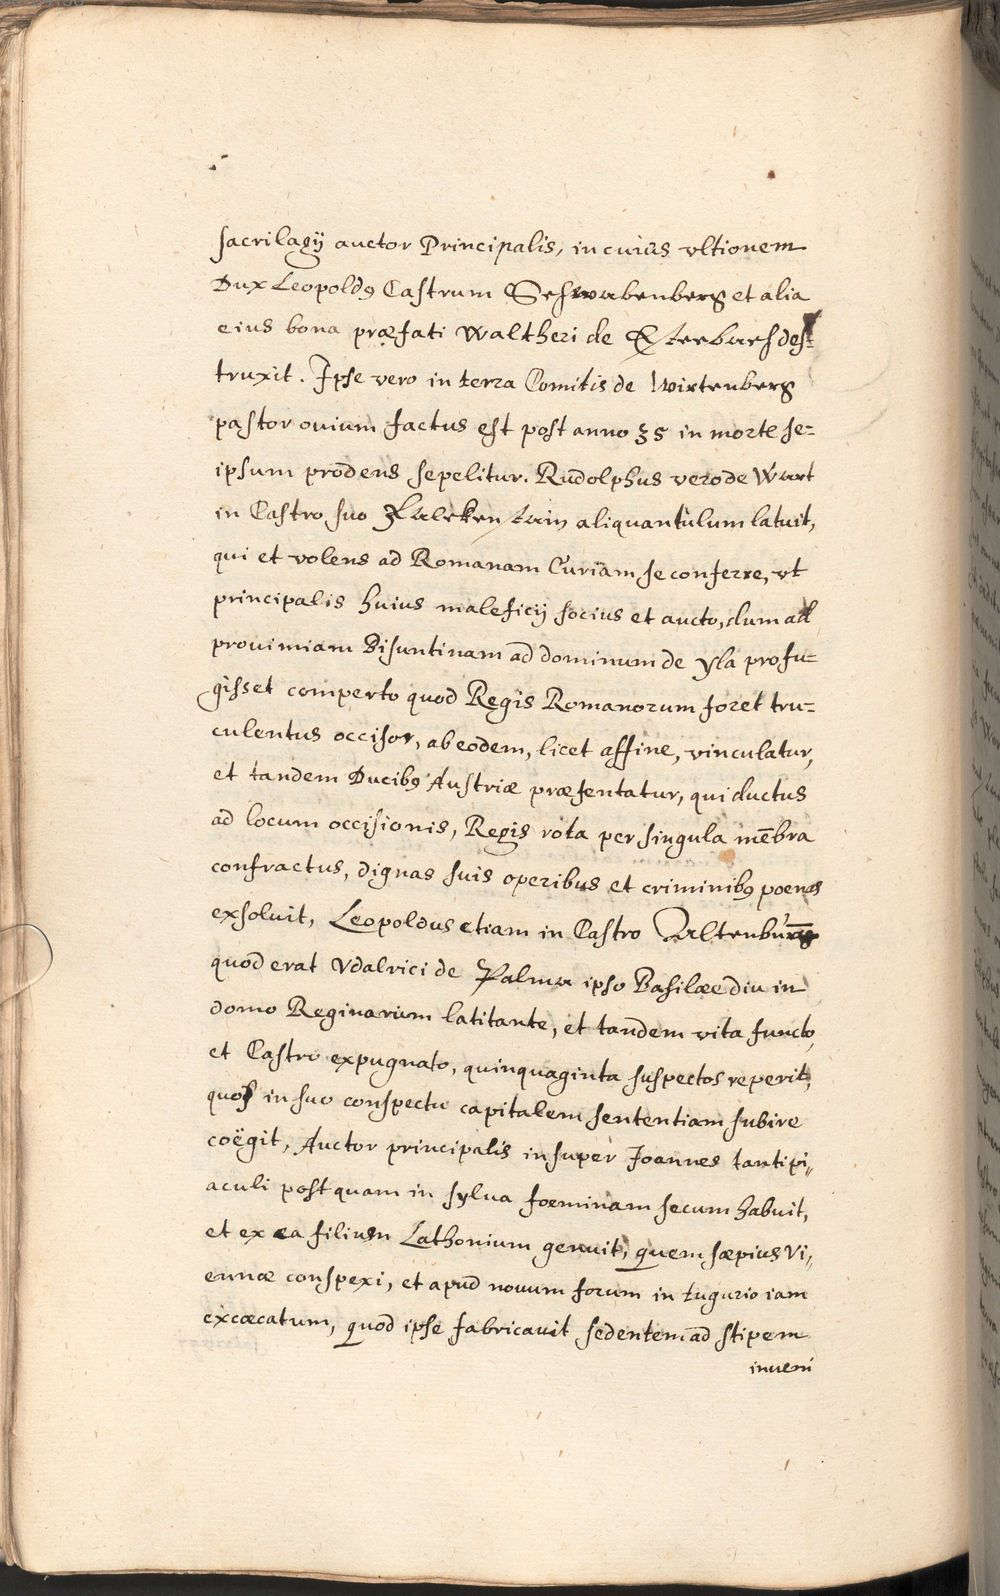 sacrilagij auctor Principalis, in cuius vltionem
Dux Leopoldꝯ Castrum Schwabenberg et alia
eius bona præfati Waltheri de Esterbach des=
truxit. Ipse vero in terra Comitis de Wirtenberg
pastor ovium factus est post anno 35 in morte se=
ipsum prodens sepelitur. Rudolphus vero de Wart
in Castro suo aliquantulum latuit,
qui et volens ad Romanam Curiam se conferre, vt
principalis huius maleficij socius et aucto, dum ad
prouimiam Bisuntinam ad dominum de yla profu=
gisset comperto quod Regis Romanorum foret tru=
culentus occisor, ab eodem, licet affine, vinculatur,
et tandem Ducibꝯ Austriæ præsentatur, qui ductus
ad locum occisionis, Regis rota per singula mēbra
confractus, dignas suis operibus et criminibꝯ poenas
exsoluit, Leopoldus etiam in Castro Altenburg
quod erat Vdalrici de Palma ipso Basilæe diu in
domo Reginarum latitante, et tandem vita functo,
et Castro expugnato, quinquaginta suspectos reperit,
quos in suo conspectu capitalem sententiam subire
coëgit, Auctor principalis insuper Joannes tanti pi„
aculi postquam in sylua foeminam secum habuit,
et ex ea filium Lathonium genuit, quem sæpius Vi„
ennæ conspexi, et apud nouum forum in tugurio iam
excæcatum, quod ipse fabricauit sedentem ad stipem
inueni